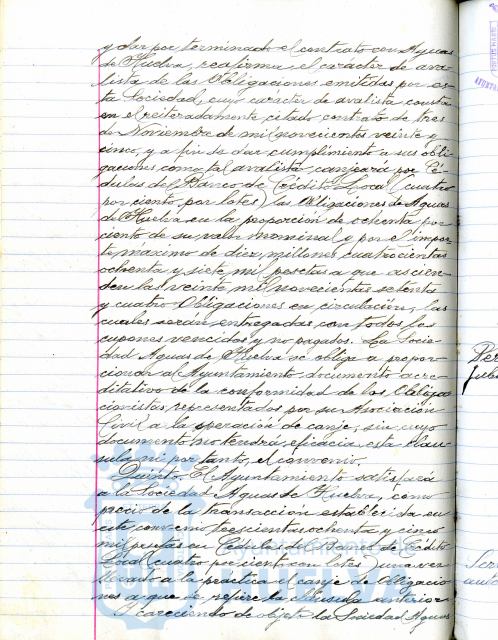 y dar por terminado el contrato con Aguas
de Huelva, reafirma el carácter de ava-
lista de las Obligaciones emitidas por es-
ta Sociedad, cuyo carácter de avalista consta
en el reiteradamente citado contrato de tres
de Noviembre de mil novecientos veinte y
cinco, y a fin de dar cumplimiento a sus obli-
gaciones como tal avalista canjeará por Cé-
dulas del Banco de Crédito Local (cuatro
por ciento, por lotes) las Obligaciones de Aguas
de Huelva en la proporción de ochenta por
ciento de su valor nominal o por el impor-
te máximo de diez millones cuatrocientas
ochenta y siete mil pesetas a que ascien-
den las veinte mil novecientas setenta
y cuatro Obligaciones en circulación, las
cuales serán entregadas con todos los
cupones vencidos y no pagados. La Socie-
dad Aguas de Huelva se obliga a propor-
cionar al Ayuntamiento documento acre-
ditativo de la conformidad de los Obliga-
cionistas, representados por su Asociación
Civil a la operación de canje, sin cuyo
documento no tendrá eficacia esta cláu-
sula ni por tanto, el convenio.
Quinto. El Ayuntamiento satisfará
a la Sociedad Aguas de Huelva, como
precio de la transacción establecida en
este convenio trescientas ochenta y cinco
mil pesetas en Cédulas del Banco de Crédito
Local (cuatro por ciento con lotes) una vez
llevado a la práctica el canje de Obligacio-
nes a que se refiere la cláusula anterior.
Y careciendo de objeto la Sociedad Aguas